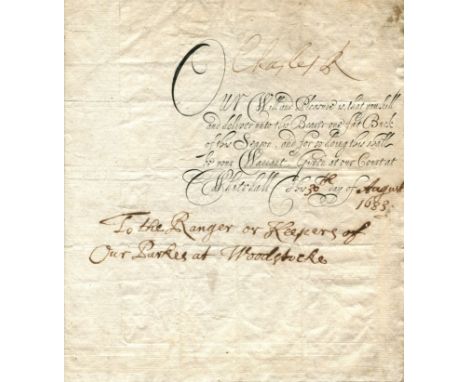 Charles R
OUR Will and Pleasure is, that you kill
and deliver unto the Bearer one fat Buck
of this Season, and for so doing this shall
be your Warrant. Given at our Court at
Whitehall the 30th day of August
1683.
To the Ranger or Keepers of
Our Parkes at Woodstocke